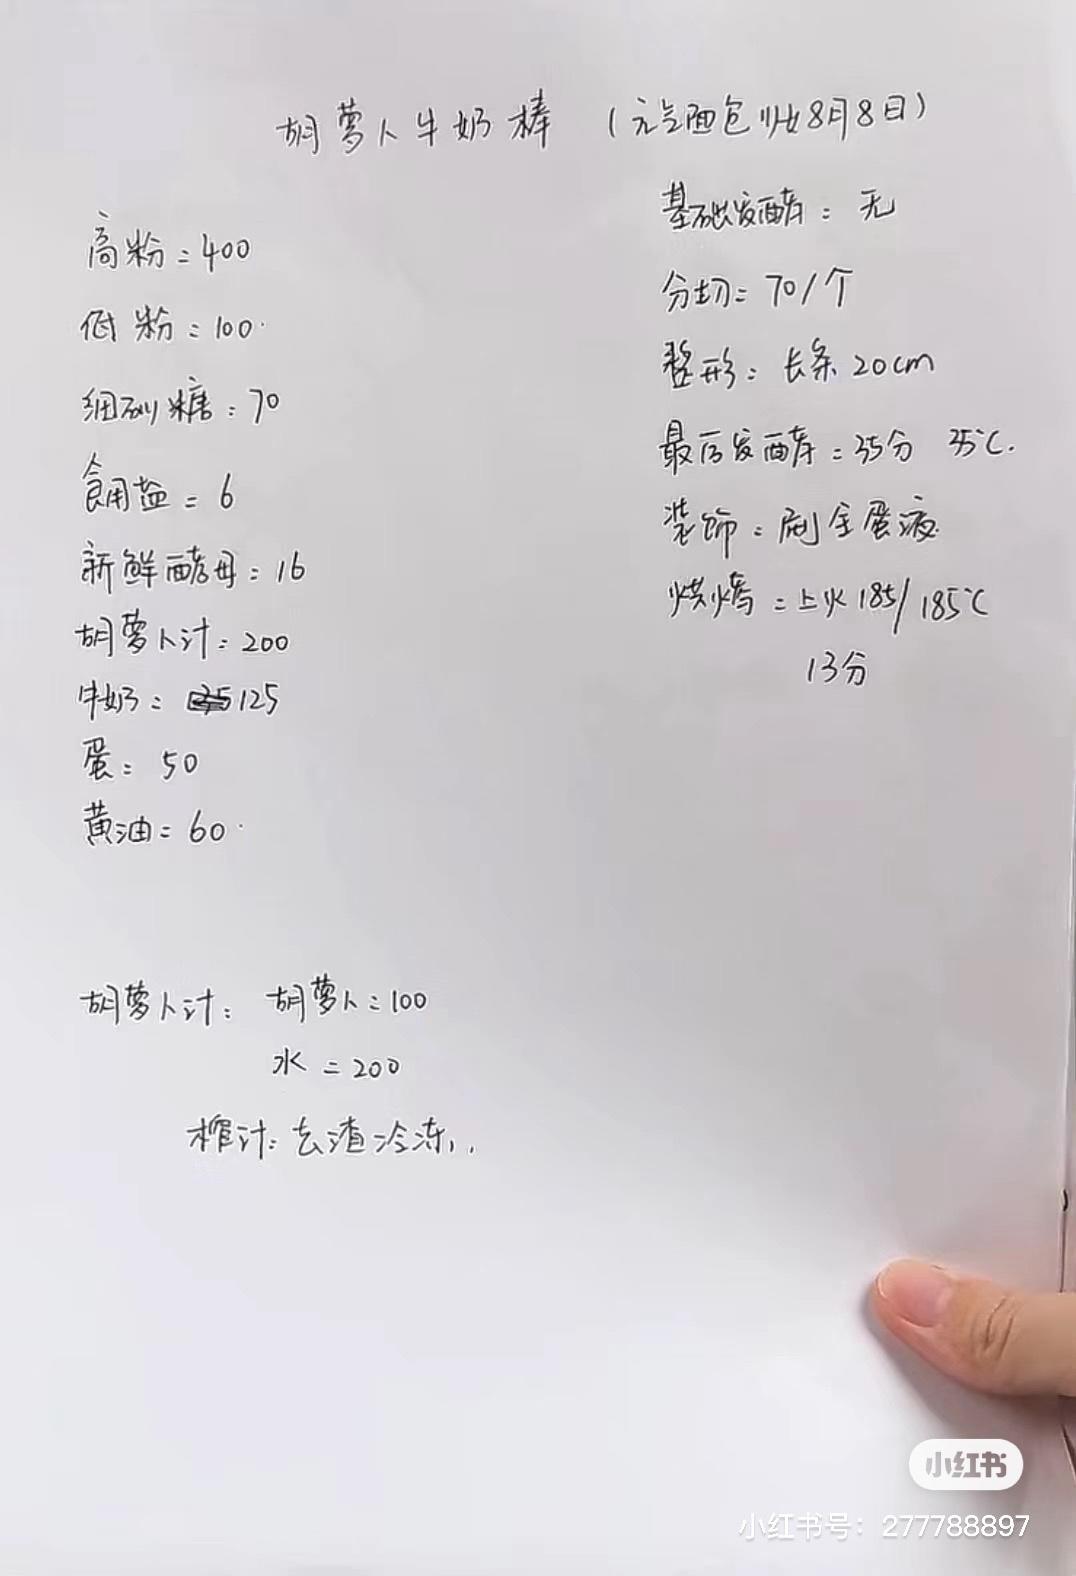 胡萝卜牛奶棒 (元气面包师8月8日)
高粉:400
低粉:100
细砂糖:70
食用盐:6
新鲜酵母:16
胡萝卜汁:200
牛奶:125
蛋:50
黄油:60
胡萝卜汁: 胡萝卜:100
水:200
榨汁:去渣冷冻
基础发酵:无
分切:70/个
整形:长条20cm
最后发酵:35分 35℃.
装饰:刷全蛋液
烘烤:上火185/185℃
13分
小红书
小红书号:277788897